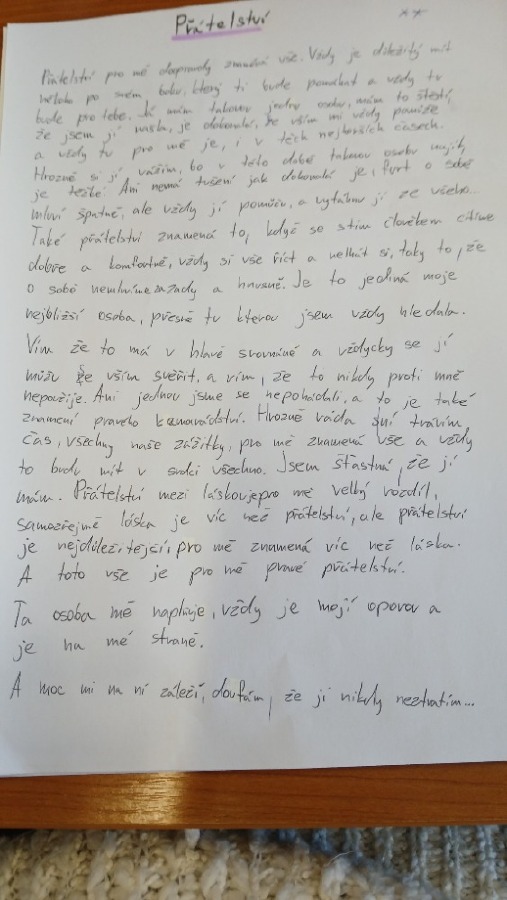 Přátelství
Přátelství pro mě doopravdy znamená vše. Vždy je důležitý mít
někoho po svém boku, který ti bude pomáhat a vždy tu
bude pro tebe. Já mám takovou jednu osobu, mám to štěstí,
že jsem jí našla, je dokonalá, se vším mi vždy pomůže
a vždy tu pro mě je, i v těch nejhorších časech.
Hrozně si jí vážím, bo v této době takovou osobu najít
je težké. Ani nemá tušení jak dokonalá je, furt o sobě
mluví špatně, ale vždy jí pomůžu, a vytáhnu jí ze všeho...
Také přátelství znamená to, když se s tím člověkem cítíme
dobře a komfortně, vždy si vše říct a nelhát si, taky to, že
o sobě nemluvíme za zády a hnusně. Je to jediná moje
nejbližší osoba, přesně tu kterou jsem vždy hledala.
Vím že to má v hlavě srovnáné a vždycky se jí
můžu se vším svěřit, a vím, že to nikdy proti mně
nepoužije. Ani jednou jsme se nepohádali, a to je také
znamení pravého kamarádství. Hrozně ráda sní trávím
čas, všechny naše zážitky, pro mě znamená vše a vždy
to budu mít v srdci všechno. Jsem šťastná, že jí
mám. Přátelství mezi láskou je pro mě velký rozdíl,
samozřejmě láska je víc než přátelství, ale přátelství
je nejdůležitejčí, pro mě znamená víc než láska.
A toto vše je pro mě pravé přátelství.
Ta osoba mě naplňuje, vždy je mojí oporou a
je na mé straně.
A moc mi na ní záleží, doufám, že jí nikdy neztratím...